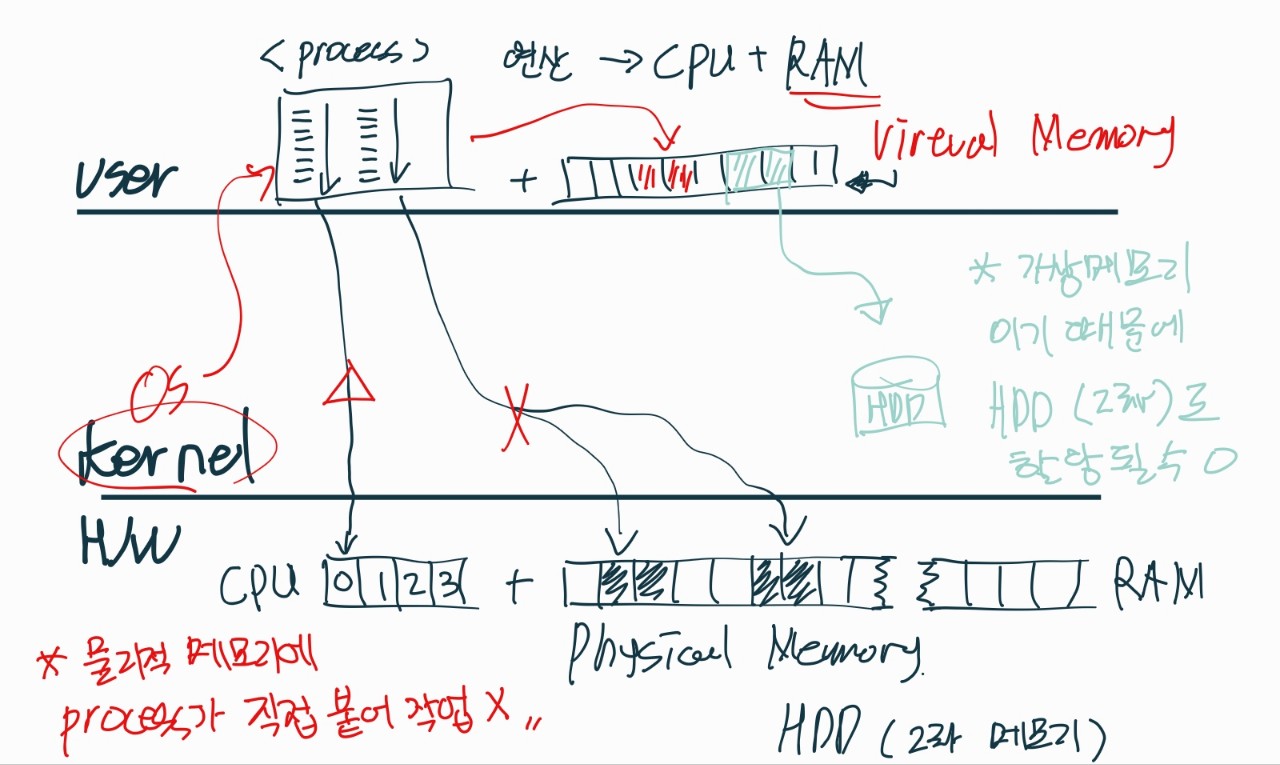 <process> 연산 → CPU + RAM
Vireual Memory
user
+
* 가상메모리
이기 때문에
HDD (2차)로
할당될수 O
HDD
OS
kernel
H/W
CPU 0 1 2 3 + RAM
Physical Memory
* 물리적 메모리에
process가 직접 붙어 작업 X „
HDD (2차 메모리)